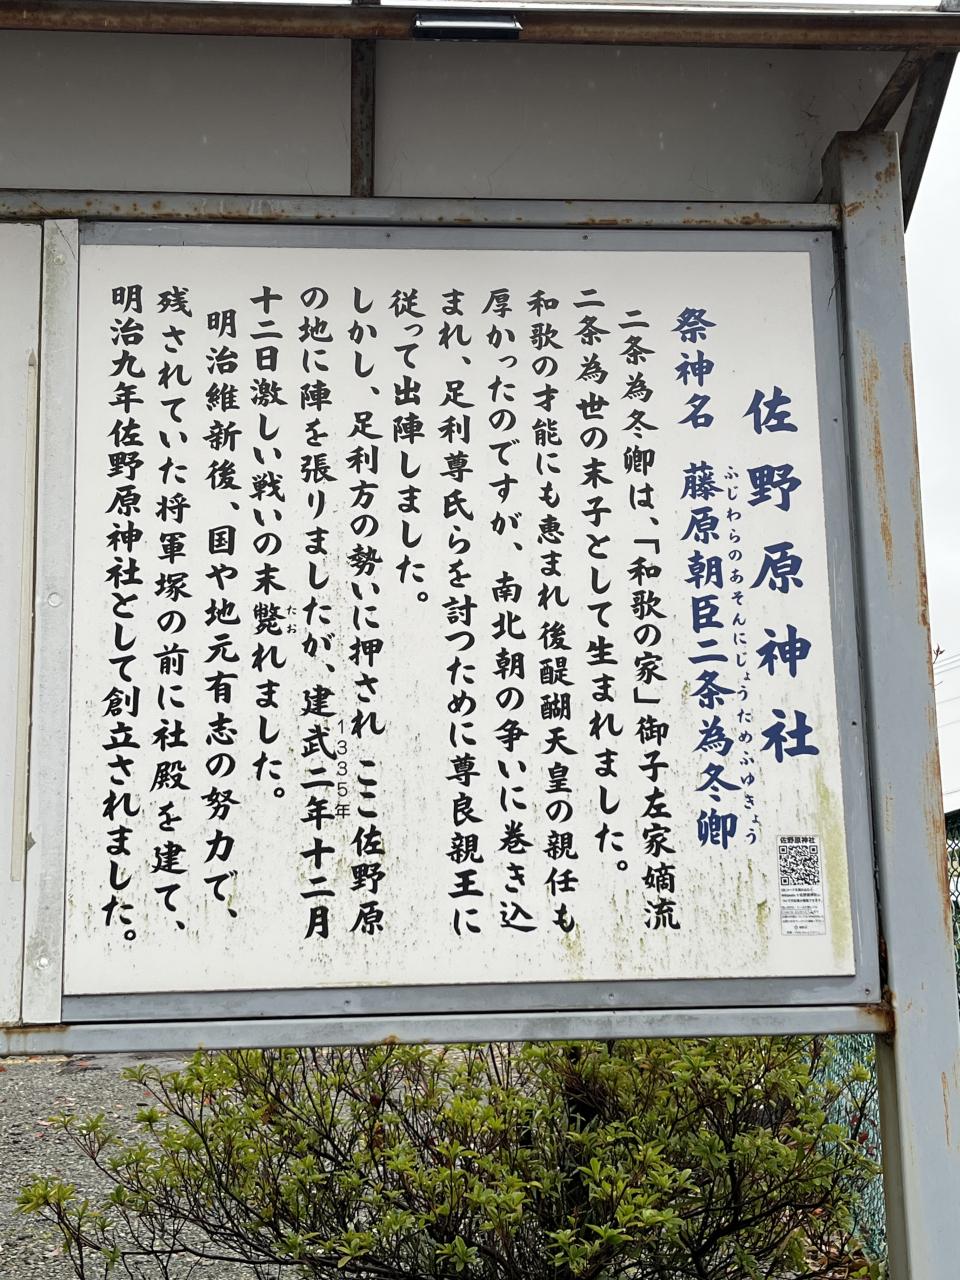 佐野原神社
祭神名 藤原朝臣二条為冬卿
ふじわらのあそんにじょうためふゆきょう
二条為冬卿は、「和歌の家」御子左家嫡流
二条為世の末子として生まれました。
和歌の才能にも恵まれ後醍醐天皇の親任も
厚かったのですが、南北朝の争いに巻き込
まれ、足利尊氏らを討つために尊良親王に
従って出陣しました。
しかし、足利方の勢いに押され ここ佐野原
の地に陣を張りましたが、建武二年十二月
1335年
十二日激しい戦いの末斃れました。
たお
明治維新後、国や地元有志の努力で、
残されていた将軍塚の前に社殿を建て、
明治九年佐野原神社として創立されました。
佐野原神社